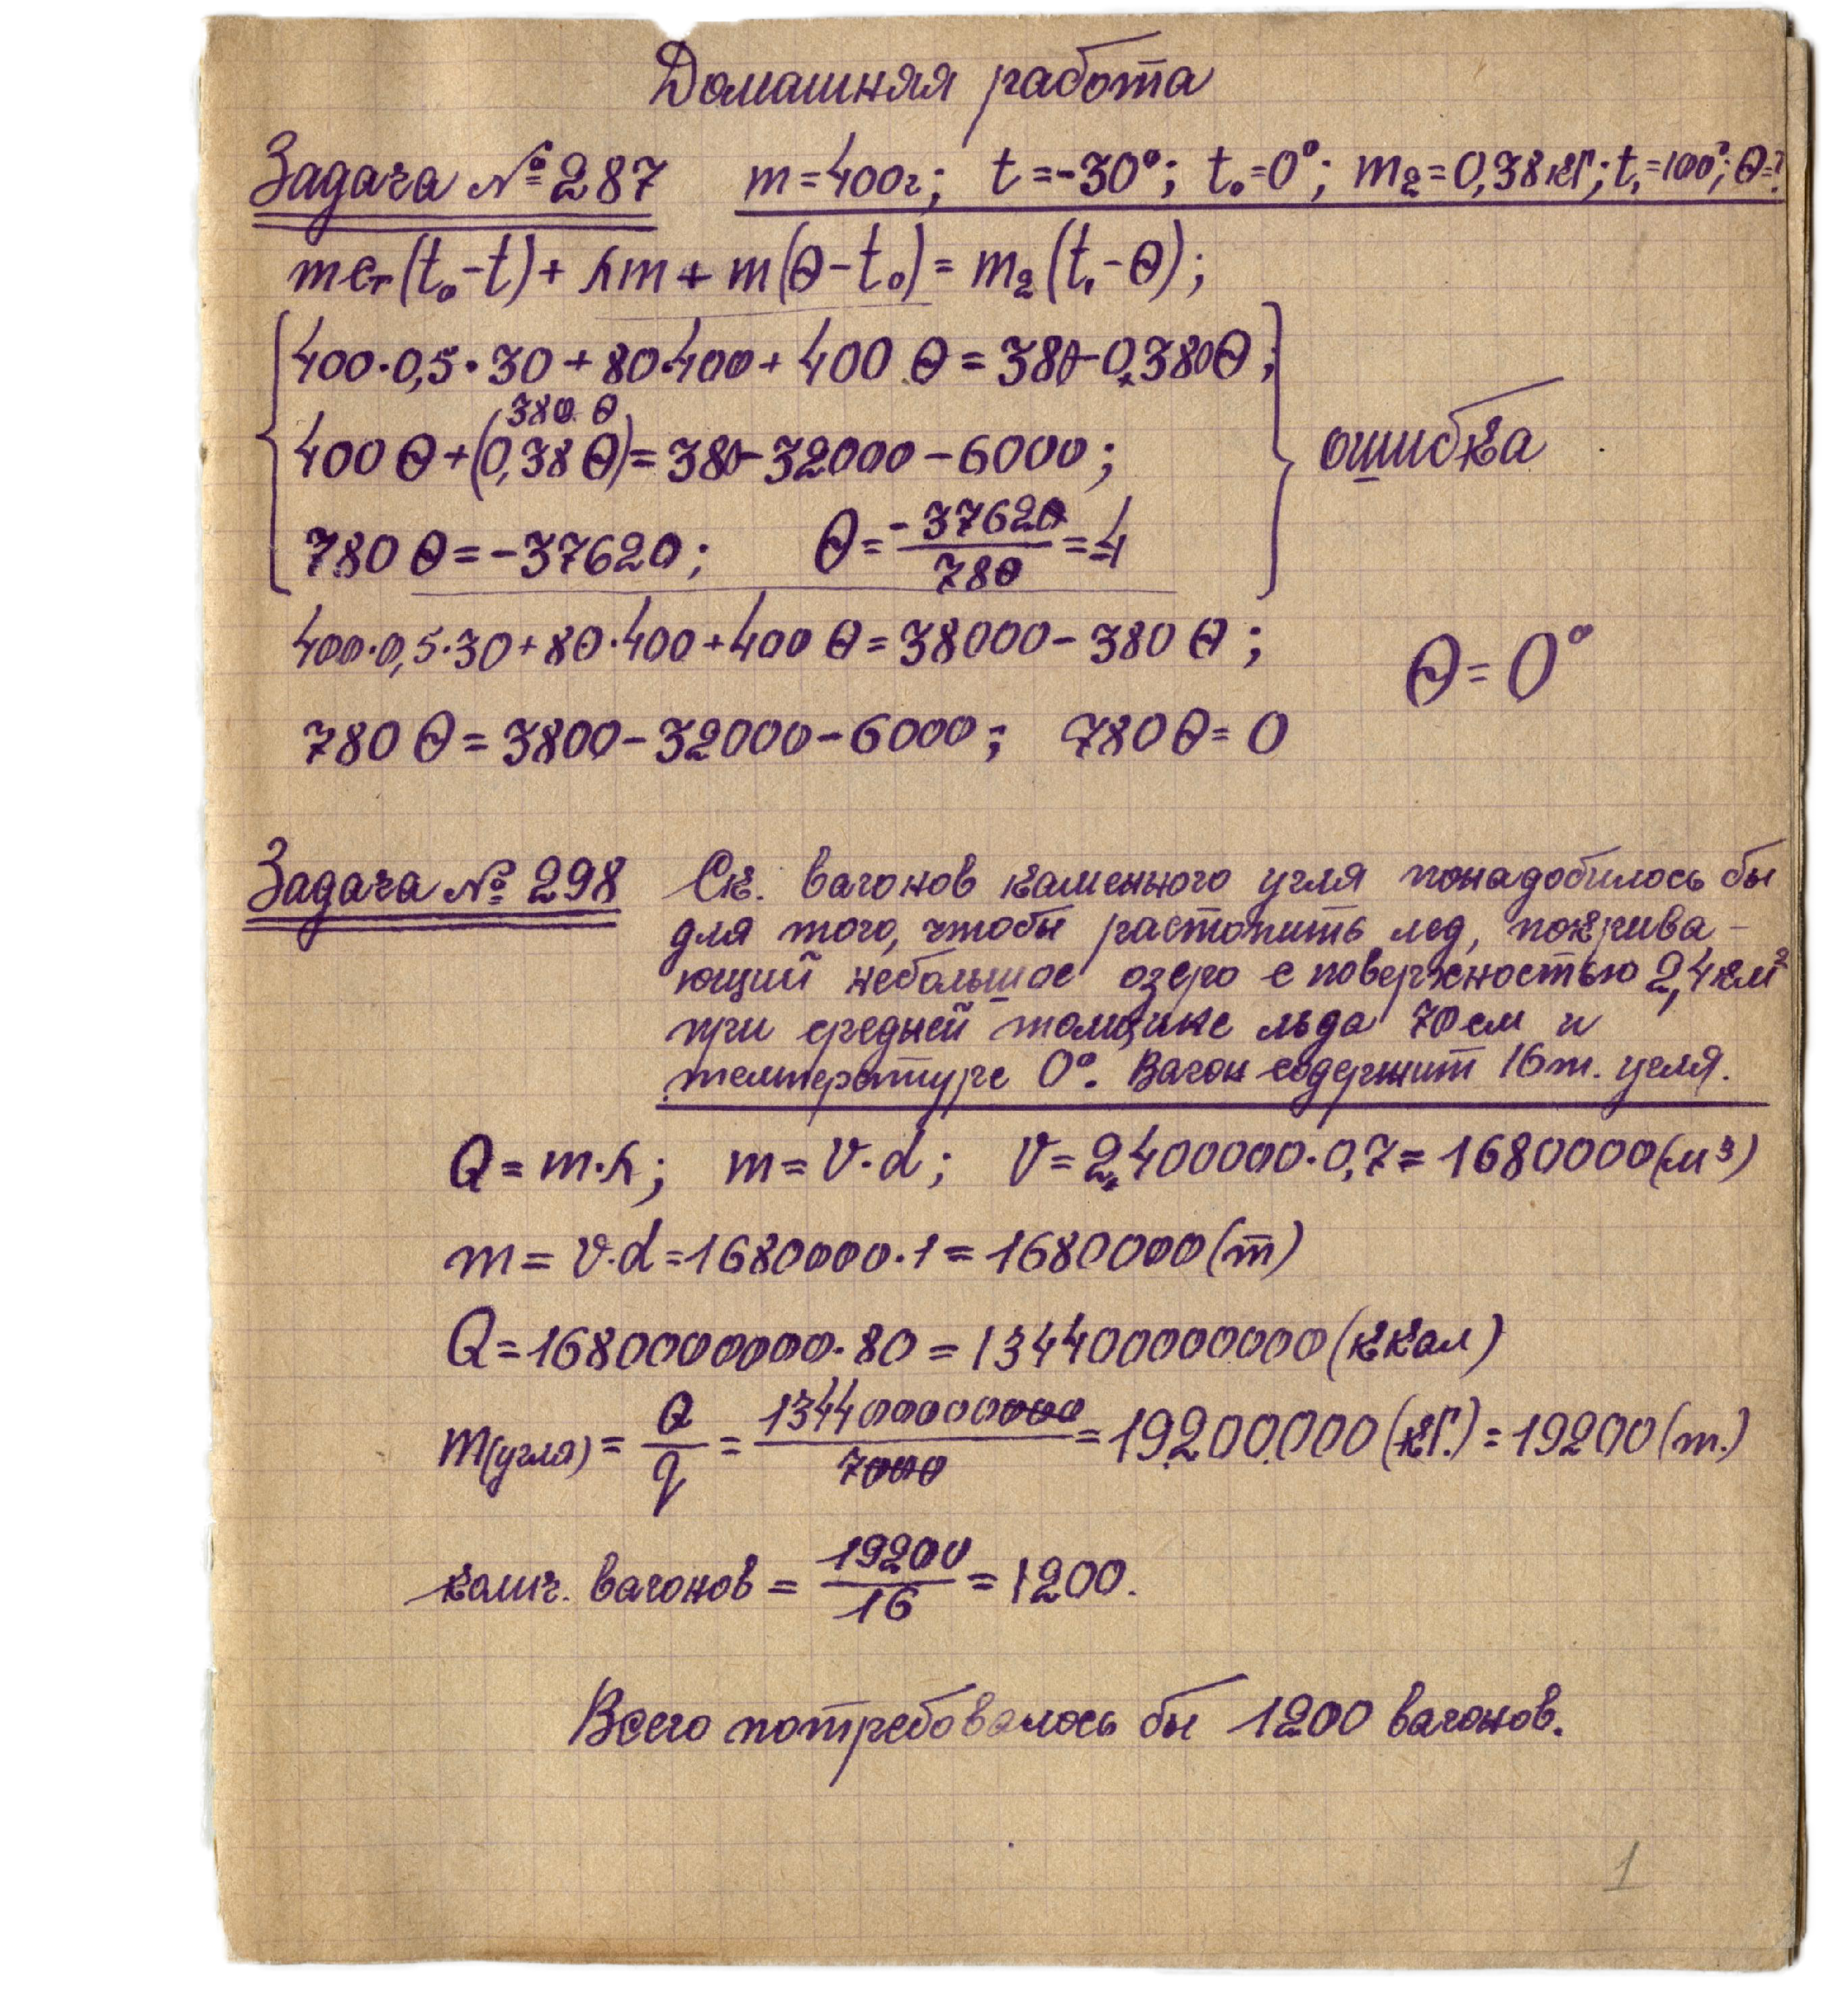 Домашняя работа
Задача № 287 m=400г; t=-30°; t₀=0°; m₂=0,38кг; t₁=100°; θ=?
mcт(t₀-t)+λm+m(θ-t₀)=m₂(t₁-θ);
400·0,5·30+80·400+400θ=380-0,380θ;
380 θ
400θ+(0,38θ)=380-32000-6000; ошибка
780θ=-37620; θ=-37620/780=-4
400·0,5·30+80·400+400θ=38000-380θ; θ=0°
780θ=3800-32000-6000; 780θ=0
Задача № 298 Ск. вагонов каменного угля понадобилось бы
для того, чтобы растопить лед, покрива-
ющий небольшое озеро с поверхностью 2,4км²
при средней толщине льда 70см и
температуре 0°. Вагон содержит 16т. угля.
Q=m·λ; m=V·d; V=2,400000·0,7=1680000(м³)
m=V·d=1680000·1=1680000(т)
Q=1680000000·80=134400000000(ккал)
m(угля)=Q/q=134400000000/7000=19200000(кг.)=19200(т.)
колич. вагонов=19200/16=1200.
Всего потребовалось бы 1200 вагонов.
1